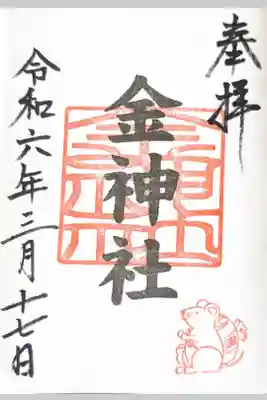 奉拝
金神社
令和六年三月十七日